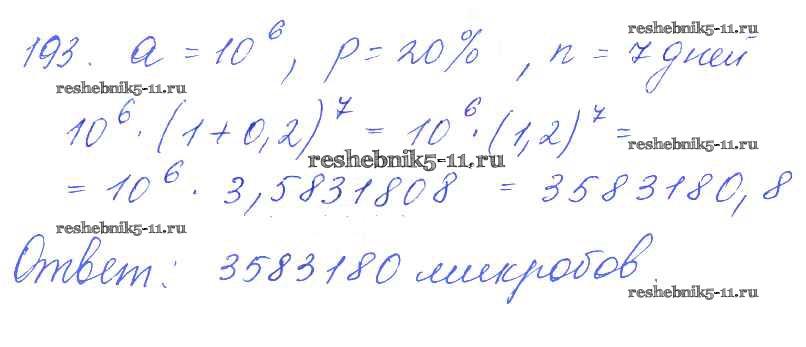 reshebnik5-11.ru
193. a = 10⁶, p = 20%, n = 7 дней
reshebnik5-11.ru
10⁶ · (1 + 0,2)⁷ = 10⁶ · (1,2)⁷ =
reshebnik5-11.ru
reshebnik5-11.ru
= 10⁶ · 3,5831808 = 3583180,8
reshebnik5-11.ru
Ответ: 3583180 микробов.
reshebnik5-11.ru